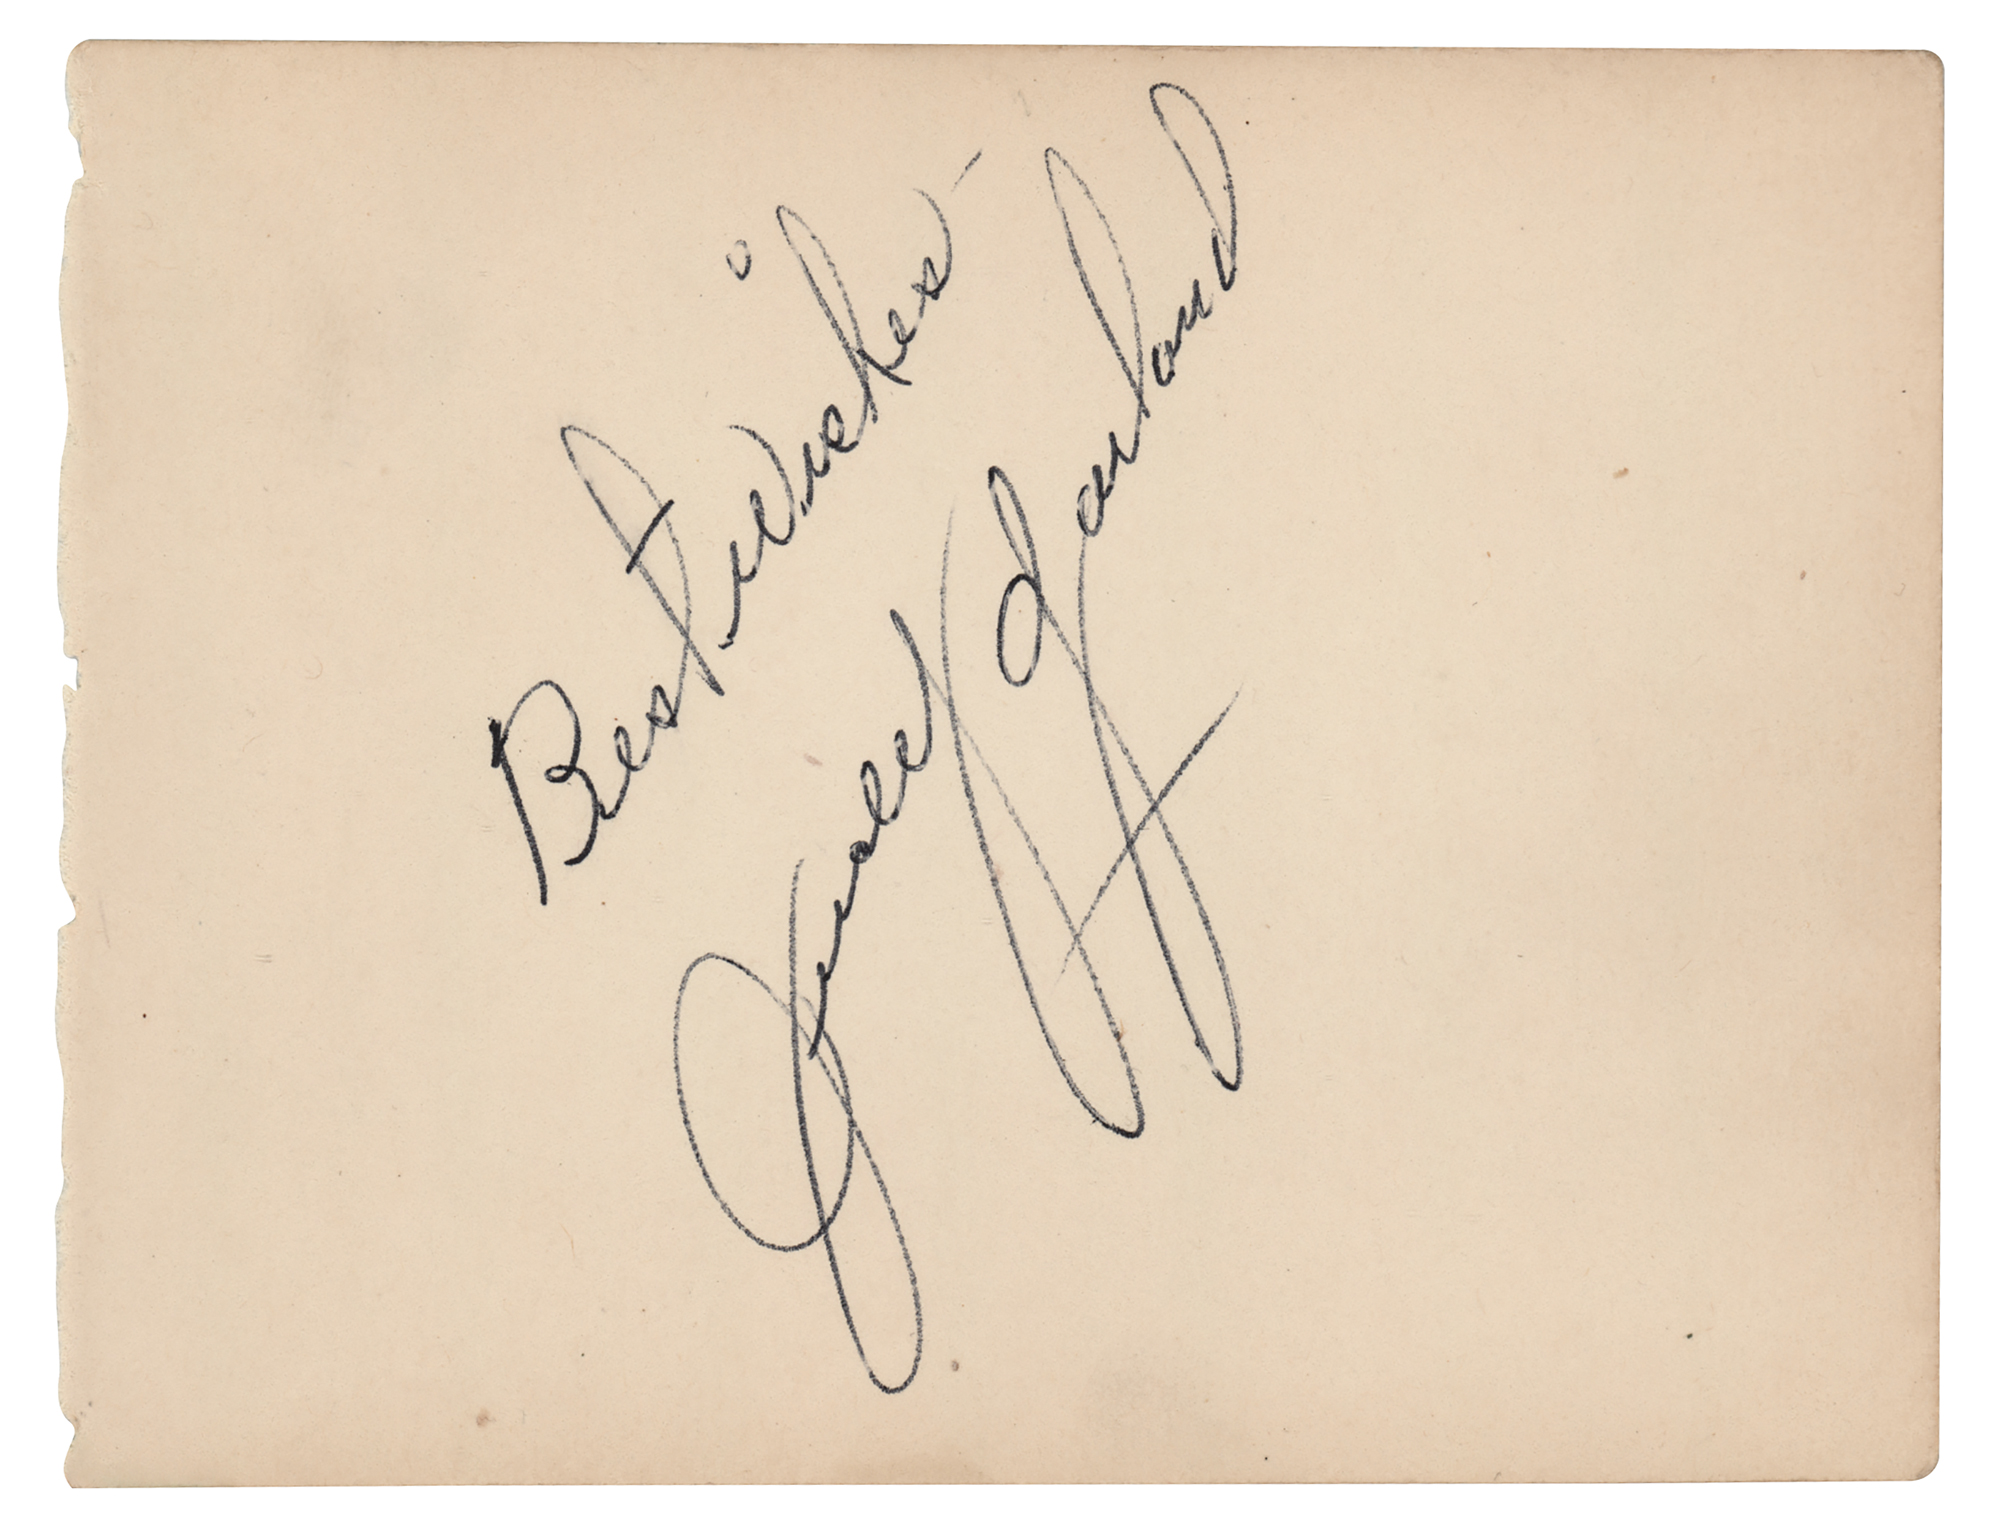 Best Wishes -
Judy Garland